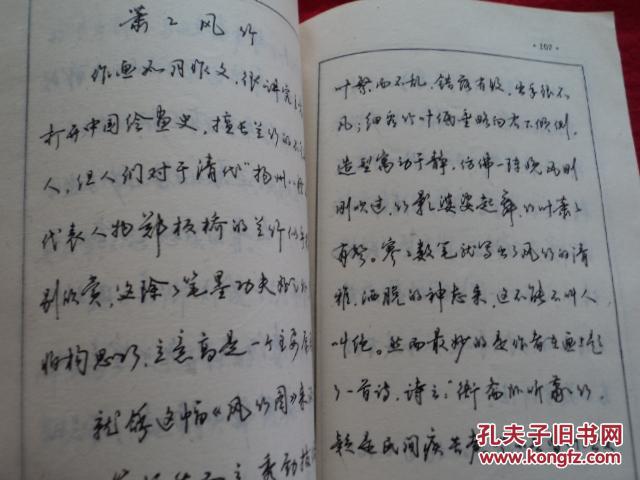 萧々风竹
作画如同作文，很讲究
打开中国绘画史，擅长兰竹的不
人，但人们对于清代“扬州
代表人物郑板桥的兰竹
别欣赏，这除了笔墨功夫
归构思巧，立意高是一个主要
就
这幅《风竹图》来
·107·
叶繁而不乱，错落有致，出手很不
凡；细看竹叶偏重略向右下倾侧，
造型寓动于静，仿佛一阵晚风刚
刚吹过，竹影婆娑起舞，竹叶萧々
有声。寥々数笔就写出了风竹的清
雅，洒脱的神态来，这不能不叫人
叫绝。然而最妙的是作者在画上题
了一首诗，诗云：“衙斋卧听萧々竹，
疑是民间疾苦声
孔夫子旧书网
www.kongfz.com